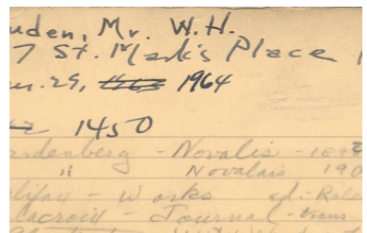 uden, Mr. W.H.
7 St. Mark's Place
n. 29, 1964
1450
rdenberg - Novalis - 1892
" Novalais 190
lifax - Works ed. Rale
lacroix - Journal - trans.